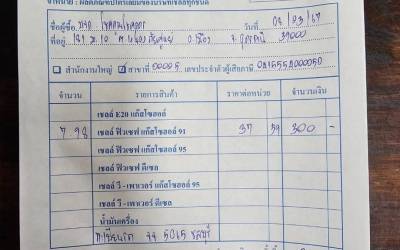 จำหน่าย : ผลิตภัณฑ์ปิโตรเลียมของบริษัทเชลล์ทุกชนิด
ชื่อผู้ซื้อ วันที่ 04/03/67
ที่อยู่ 121 ม.10 อ.เมือง จ.อุดรธานี 41000
สำนักงานใหญ่ สาขาที่ 00005 เลขประจำตัวผู้เสียภาษี
จำนวน รายการสินค้า ราคาต่อหน่วย จำนวนเงิน
เชลล์ E20 แก๊สโซฮอล์
7 98 เชลล์ ฟิวเซฟ แก๊สโซฮอล์ 91 37 59 300 -
เชลล์ ฟิวเซฟ แก๊สโซฮอล์ 95
เชลล์ ฟิวเซฟ ดีเซล
เชลล์ วี - เพาเวอร์ แก๊สโซฮอล์ 95
เชลล์ วี - เพาเวอร์ ดีเซล
น้ำมันเครื่อง
ทะเบียนรถ 5065 ชลบุรี